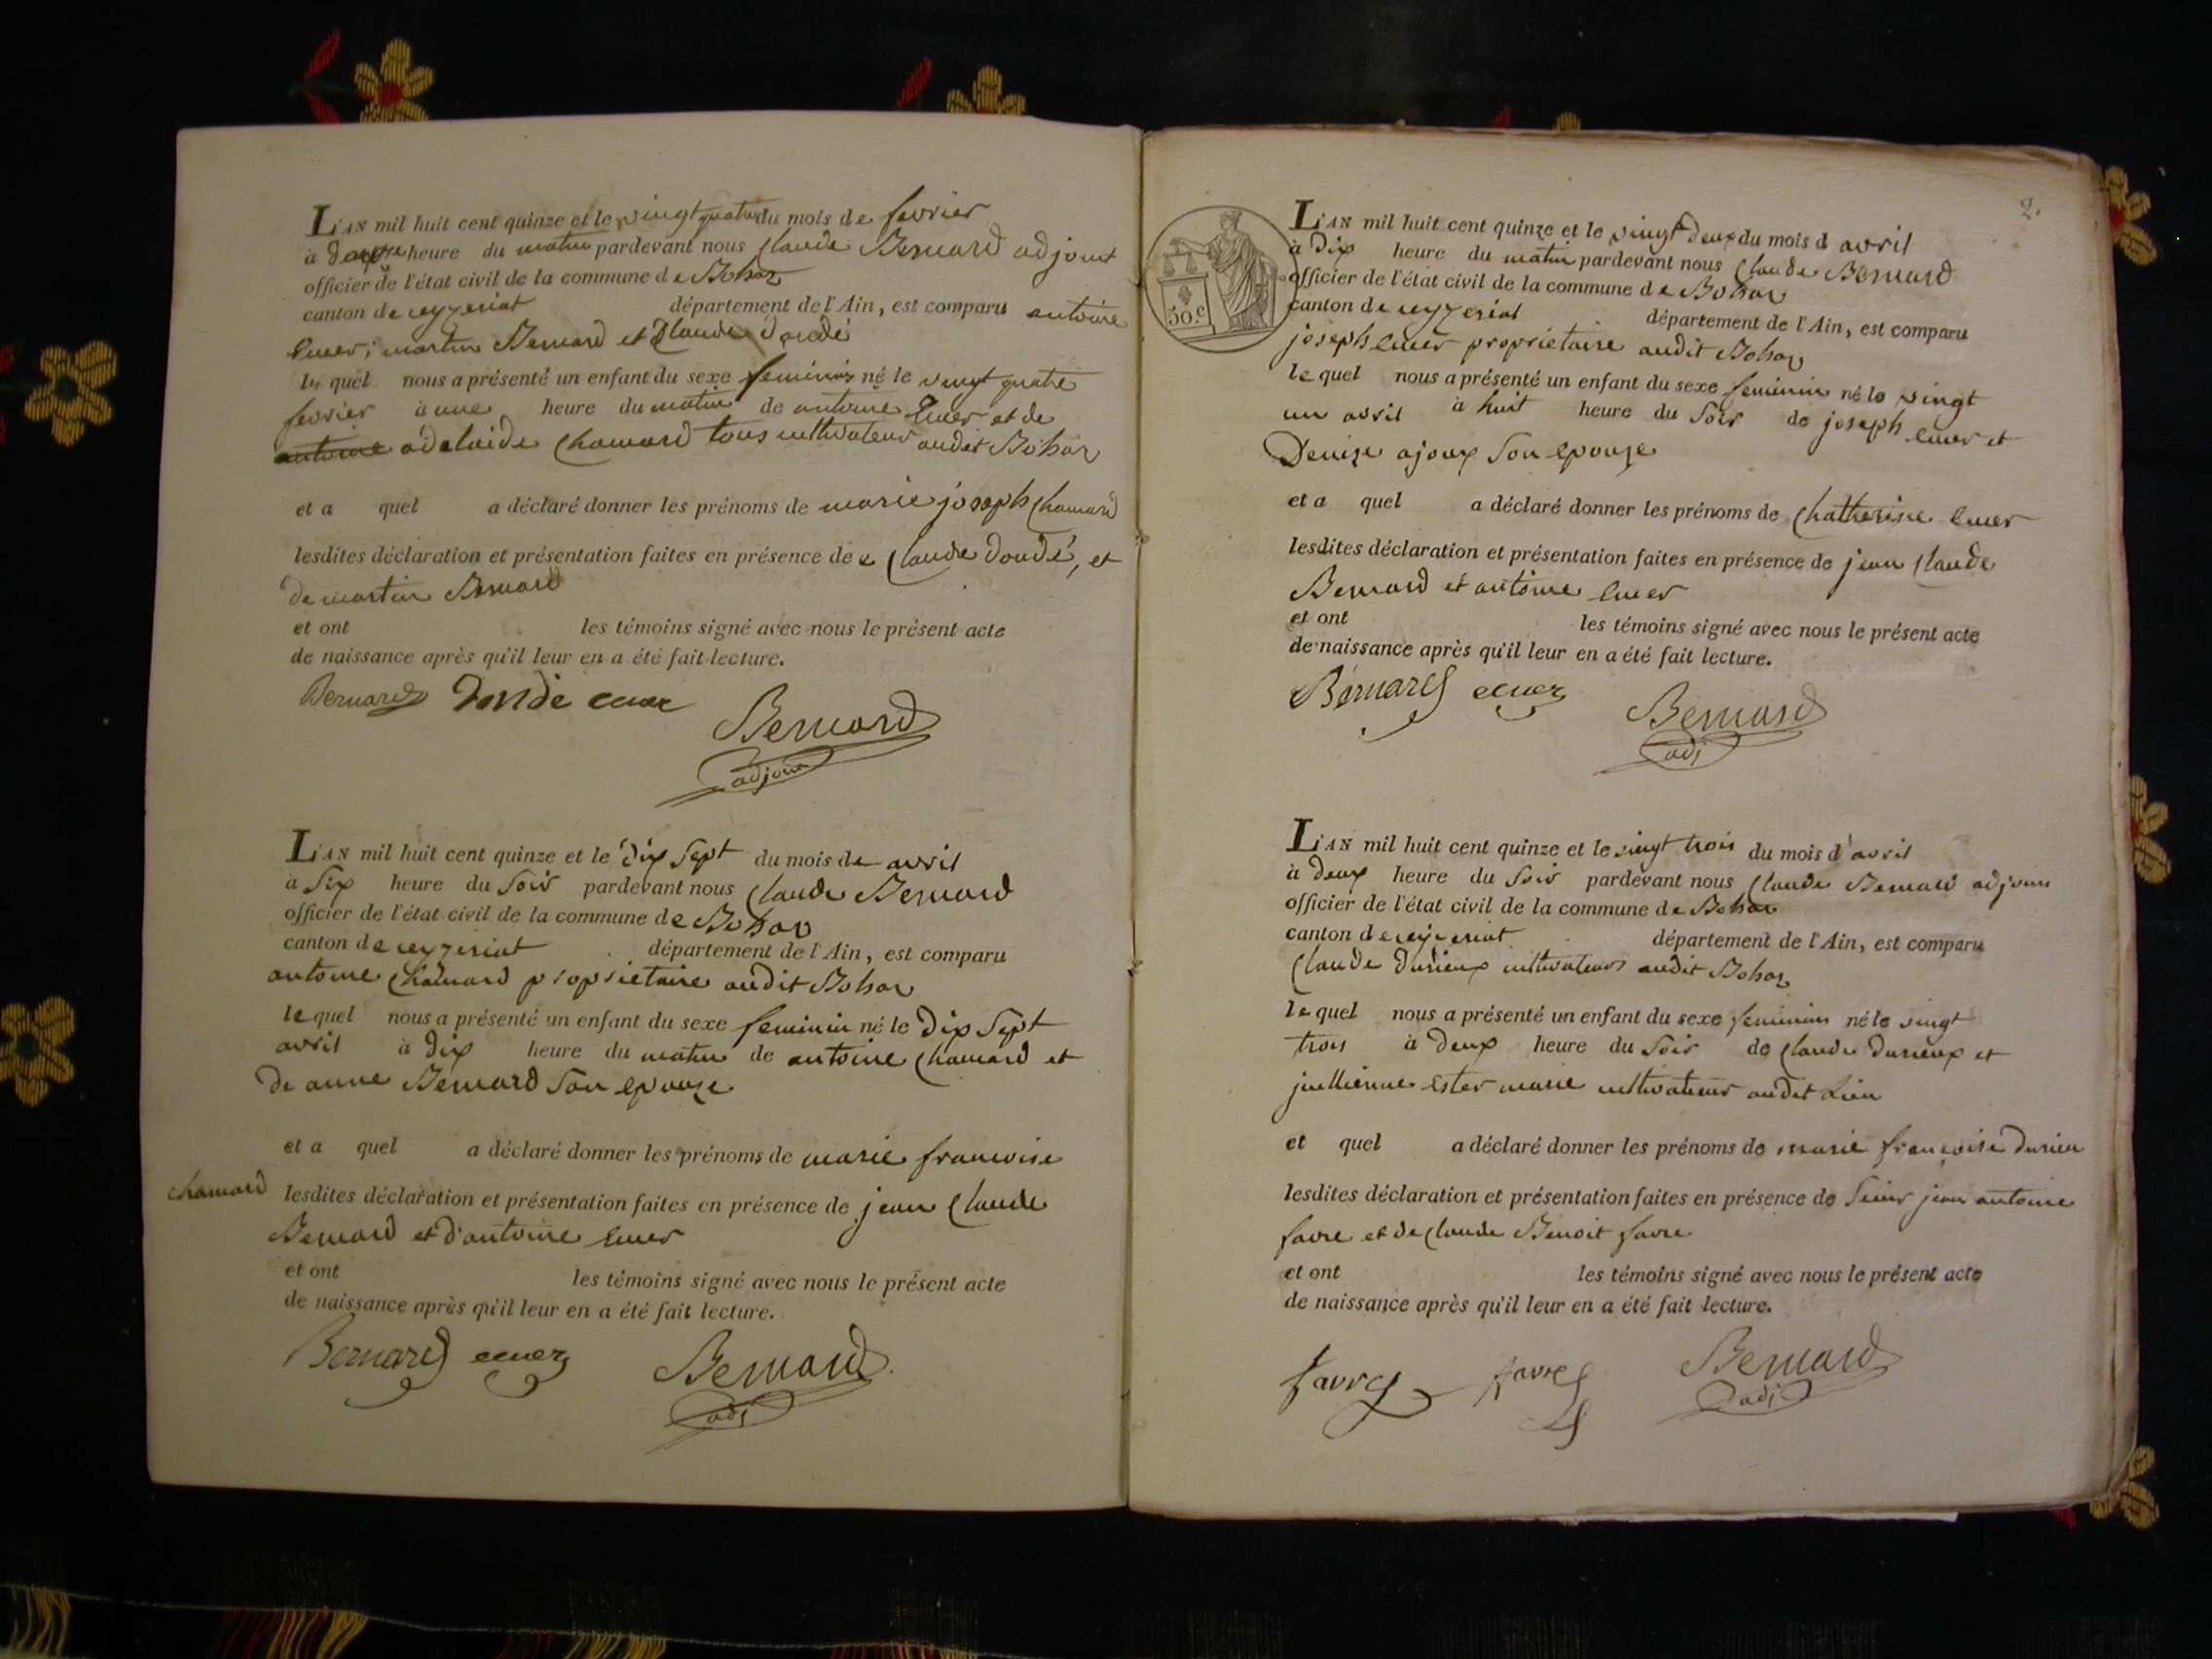 L'AN mil huit cent quinze et le vingt quatre du mois de fevrier
à heure du matin pardevant nous Claude Bernard adjoint
officier de l'état civil de la commune de Bohaz
canton de ceyzeriat département de l'Ain, est comparu antoine
Ecuer, martin Bernard et Claude Dondé
le quel nous a présenté un enfant du sexe feminin né le vingt quatre
fevrier à une heure du matin de antoine Ecuer et de
antoine adelaide Chamard tous cultivateur audit Bohaz
et a quel a déclaré donner les prénoms de marie joseph Chamard
lesdites déclaration et présentation faites en présence de Claude Dondé, et
de martin Bernard
et ont les témoins signé avec nous le présent acte
de naissance après qu'il leur en a été fait lecture.
Bernard Dondé ecuer
Bernard
adjoint
L'AN mil huit cent quinze et le dix sept du mois de avril
à six heure du soir pardevant nous Claude Bernard
officier de l'état civil de la commune de Bohaz
canton de ceyzeriat département de l'Ain, est comparu
antoine Chamard proprietaire audit Bohaz
le quel nous a présenté un enfant du sexe feminin né le dix sept
avril à dix heure du matin de antoine Chamard et
de anne Bernard son epouze
et a quel a déclaré donner les prénoms de marie francoise
chamard lesdites déclaration et présentation faites en présence de jean Claude
Bernard et d'antoine Ecuer
et ont les témoins signé avec nous le présent acte
de naissance après qu'il leur en a été fait lecture.
Bernard ecuer
Bernard
adj
2.
50.c
L'AN mil huit cent quinze et le vingt deux du mois d avril
à dix heure du matin pardevant nous Claude Bernard
officier de l'état civil de la commune de Bohaz
canton de ceyzeriat département de l'Ain, est comparu
joseph Ecuer proprietaire audit Bohaz
le quel nous a présenté un enfant du sexe feminin né le vingt
un avril à huit heure du soir de joseph Ecuer et
Denize ajoux son epouze
et a quel a déclaré donner les prénoms de Chatherine Ecuer
lesdites déclaration et présentation faites en présence de jean Claude
Bernard et antoine Ecuer
et ont les témoins signé avec nous le présent acte
de naissance après qu'il leur en a été fait lecture.
Bernard ecuer
Bernard
adj
L'AN mil huit cent quinze et le vingt trois du mois d'avril
à deux heure du soir pardevant nous Claude Bernard adjoint
officier de l'état civil de la commune de Bohaz
canton de ceyzeriat département de l'Ain, est comparu
Claude Durieux cultivateur audit Bohaz
le quel nous a présenté un enfant du sexe feminin né le vingt
trois à deux heure du soir de Claude Durieux et
jullienne Ester marie cultivateur audit Lieu
et quel a déclaré donner les prénoms de marie françoise Durieu
lesdites déclaration et présentation faites en présence de jean antoine
favre et de Claude Benoit favre
et ont les témoins signé avec nous le présent acte
de naissance après qu'il leur en a été fait lecture.
favre favre
Bernard
adj